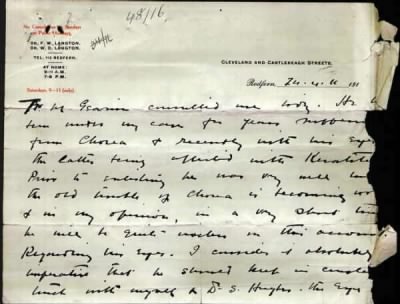 48/16.
No Consultations on Sundays
DR. F. W. LANGTON
DR. W. D. LANGTON.
TEL. 118 REDFERN.
AT HOME:
9-11 A.M.
7-8 P.M.
Saturdays, 9-11 (only).
CLEVELAND AND CASTLEREAGH STREETS.
Redfern 191
consulted me today. He
been under my care for years suffering
from Chorea & recently with his Eyes
the latter being affected with Keratitis
Prior to enlisting he was very well but
the old trouble of Chorea is becoming wor
& in my opinion, in a very short time
he will be quite useless on this account
Regarding his Eyes. I consider it absolutely
imperative that he should keep in constan
touch with myself & Dr. S. Hughes. the Eye